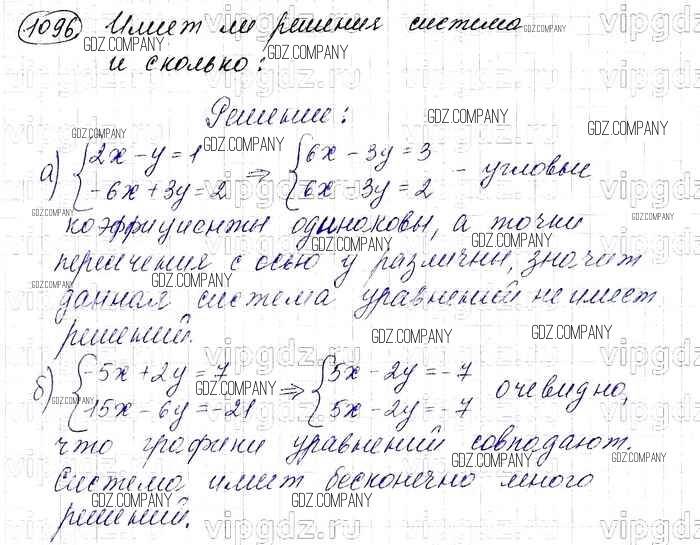 1096 Имеет ли решения система
и сколько:
Решение:
а) {2x - y = 1 ⇒ {6x - 3y = 3 - угловые
{-6x + 3y = 2 {6x - 3y = 2
коэффициенты одинаковы, а точки
пересечения с осью y различны, значит
данная система уравнений не имеет
решений.
б) {-5x + 2y = 7 ⇒ {5x - 2y = -7 очевидно,
{15x - 6y = -21 {5x - 2y = -7
что графики уравнений совпадают.
Система имеет бесконечно много
решений.
GDZ.COMPANY
vipgdz.ru